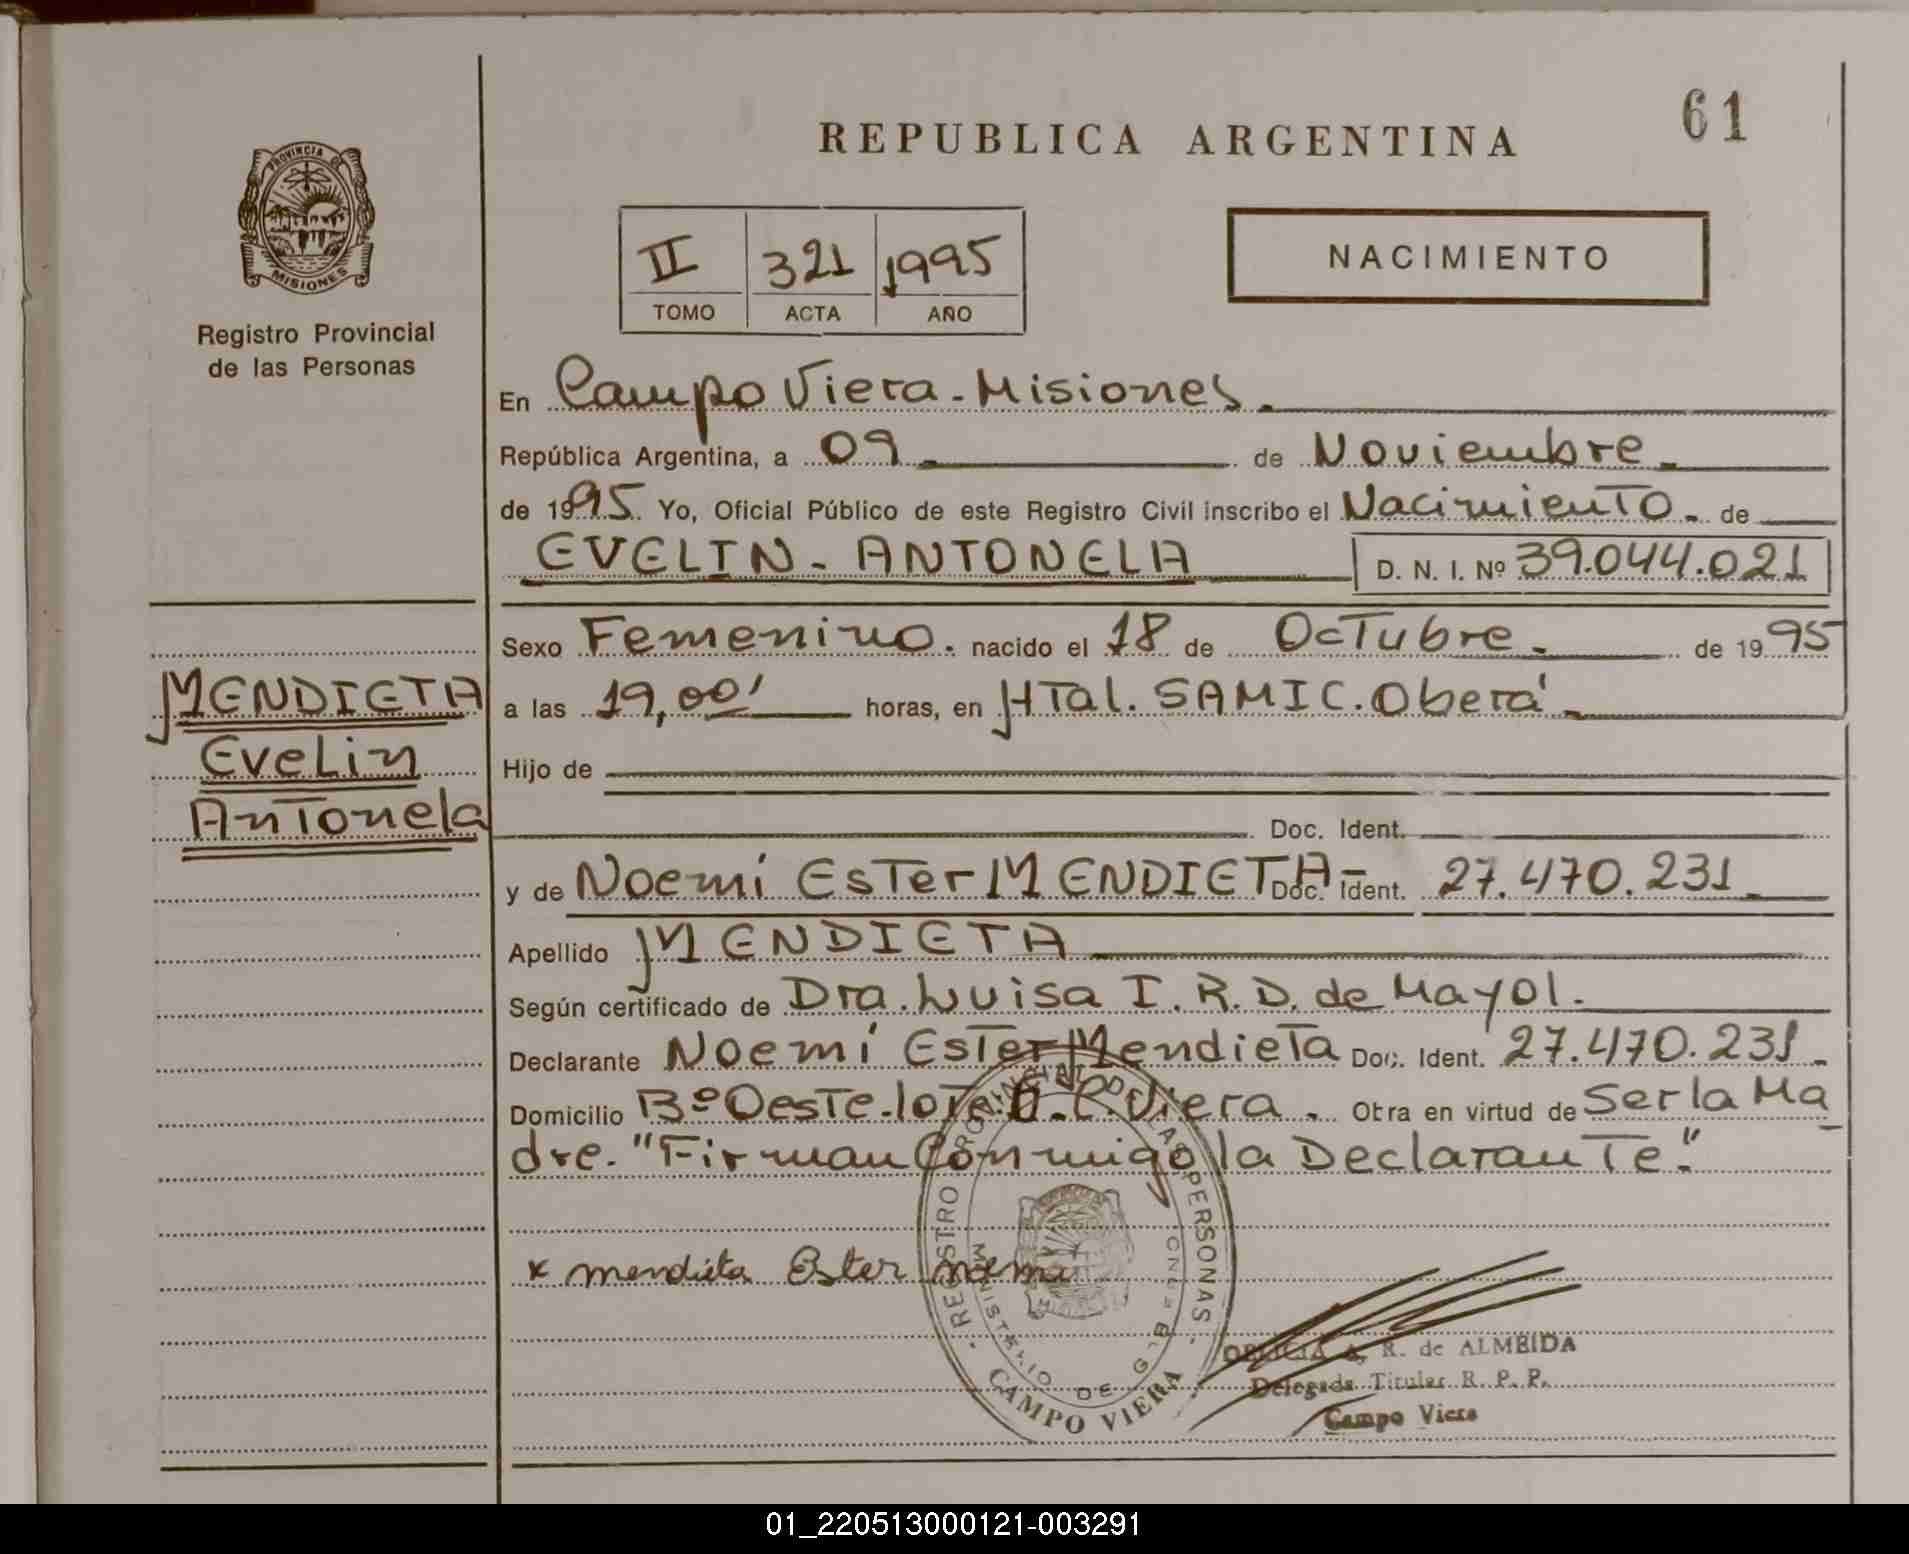 61
REPUBLICA ARGENTINA
PROVINCIA DE
MISIONES
Registro Provincial
de las Personas
II 321 1995
TOMO ACTA AÑO
NACIMIENTO
En Campo Viera - Misiones.
República Argentina, a 09 de Noviembre
de 1995. Yo, Oficial Público de este Registro Civil inscribo el Nacimiento. de
EVELIN - ANTONELA D. N. I. Nº 39.044.021
Sexo Femenino. nacido el 18 de Octubre de 1995
a las 19,00' horas, en HTal. SAMIC. Oberá
Hijo de
Doc. Ident.
y de Noemí Ester MENDIETA - Doc. Ident. 27.470.231
Apellido MENDIETA
Según certificado de Dra. Luisa I. R. D. de Mayol.
Declarante Noemí Ester Mendieta Doc. Ident. 27.470.231
Domicilio Bº Oeste - lote C. Viera. Otra en virtud de Ser la Ma
dre. "Firman Conmigo la Declarante."
MENDIETA
Evelin
Antonela
x mendieta Ester noemi
REGISTRO PROVINCIAL DE LAS PERSONAS
MINISTERIO DE
CAMPO VIERA
R. de ALMEIDA
Delegada Titular R. P. P.
Campo Viera
01_220513000121-003291